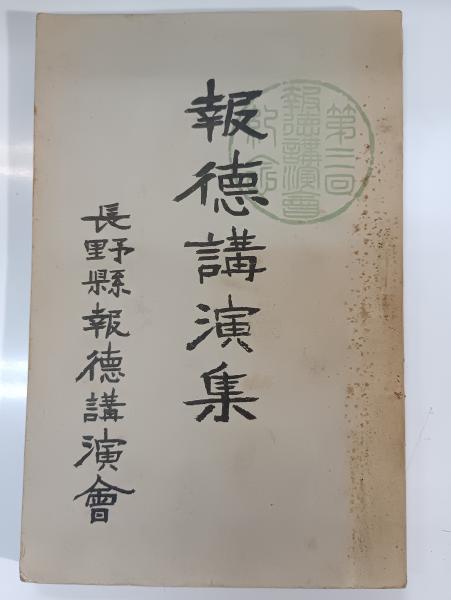 第三回
報德講演會
紀念
報德講演集
長野縣報德講演會